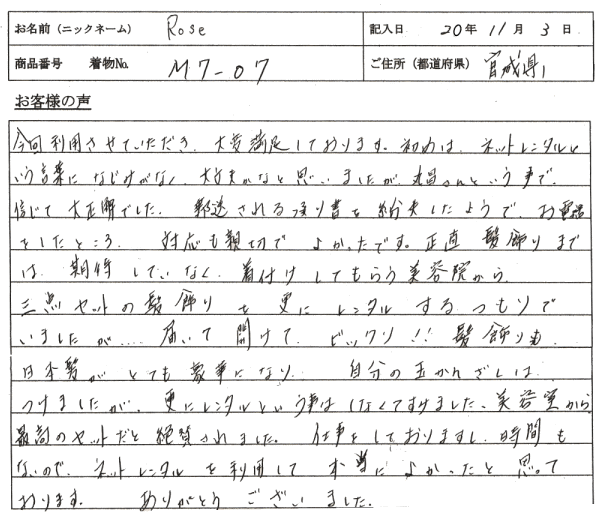 お名前(ニックネーム) Rose 記入日 20年 11月 3日
商品番号 着物No. M7-07 ご住所(都道府県)宮城県
お客様の声
今回利用させていただき、大変満足しております。初めは、ネットレンタルと
いう言葉になじみがなく、大丈夫かなと思いましたが、丸昌さんという事で、
信じて大正解でした。郵送される承り書を紛失したようで、お電話
をしたところ、対応も親切でよかったです。正直 髪飾りまで
は、期待していなく、着付けしてもらう美容院から
三点セットの髪飾りを更にレンタルするつもりで
いましたが…届いて開けて、ビックリ!!髪飾りも
日本髪がとても豪華になり、自分の玉かんざしは
つけましたが、更にレンタルという事はしなくてすみました、美容室から
最高のセットだと絶賛されました。仕事をしておりますし、時間も
ないので、ネットレンタルを利用して本当によかったと思って
おります。ありがとうございました。